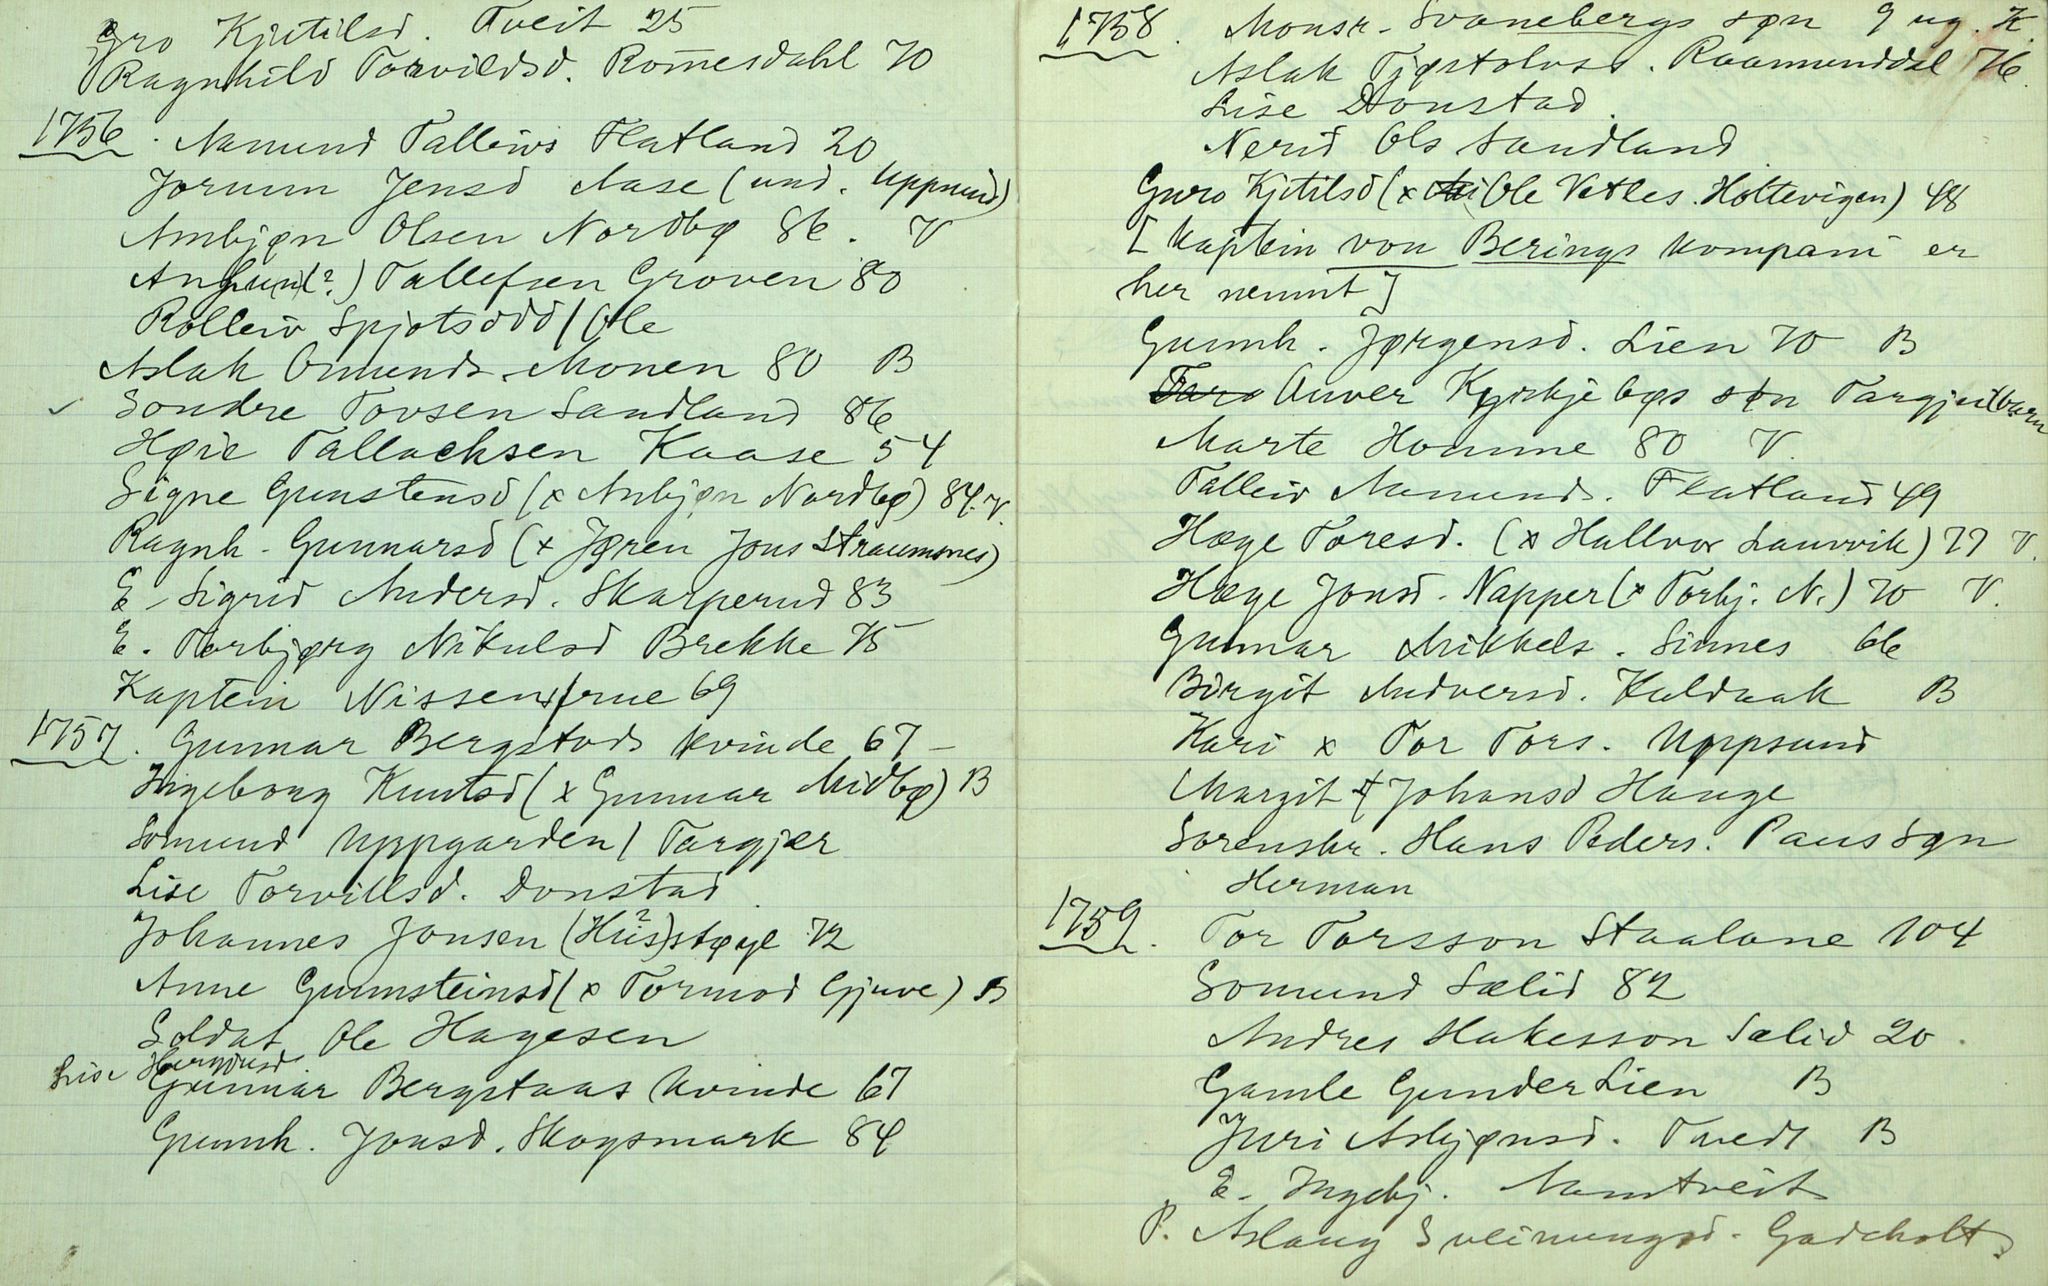 Gro Kjetilsd. Tveit 25
Ragnhild Torvildsd. Romesdahl 70
1756. Aamund Talleivs Flatland 20
Jorunn Jensd Aase (und. Uppsund)
Ambjøn Olsen Nordbø 86. V
(?) Tallefsen Groven 80
Rolleiv Spjotsodd / Ole
Aslak Omunds. Monen 80 B
✓ Sondre Tovsen Sandland 86
Høie Tallachsen Kaase 54
Signe Gunstensd (x Anbjøn Nordbø) 84. V.
Ragnh. Gunnarsd (x Jøren Jons Straumsnes)
E. Sigrid Andersd. Skarperud 83
E. Torbjørg Nikulsd Brekke 75
Kaptein Nissens frue 69
1757. Gunnar Bergstads kvinde 67 –
Ingeborg Knutsd (x Gunnar Midbø) B
Somund Uppgarden / Targjær
Lise Torvillsd. Donstad.
Johannes Jonsen (Hus?)støyl 72
Anne Gunnsteinsd (x Tormod Gjuve) B
Soldat Ole Hagesen
Lise
Gunnar Bergstaas kvinde 67
Gunnh. Jonsd. Skogsmark 84
1758. Monsr. Svanebergs søn 9 ug. K.
Aslak Tjøstolvsd. Raamunddal 76.
Lise Donstad.
Nerid Ols Sandland
Guro Kjetilsd (x Ole Vetles. Holtevigen) 48
[Kaptein von Berings kompani er
her nemnt]
Gunnh. Jørgensd. Lien 70 B
Anver Kyrkjebøs søn Targjeitbarn
Marte Homme 80 V.
Talleiv Aamunds. Flatland 49
Hæge Toresd. (x Hallvor Lauvvik) 77 V.
Hæge Jonsd. Napper (x Torbj. N.) 70 V.
Gunnar Mikkels. Sinnes 66
Birgit Andversd. Kaldaak B
Kari x Tor Tors. Uppsund
Margit Johansd Hauge
Sorenskr. Hans Peders. Paus søn
Herman
1759. Tor Torsson Staalane 104
Somund Sælid 82
Andres Hakesson Sælid 20.
Gamle Gunder Lien B
Juri Asbjønsd. Tvedt B
E. Ingebj. Mamtveit
P. Aslaug Sveinungsd. Gardeholt.